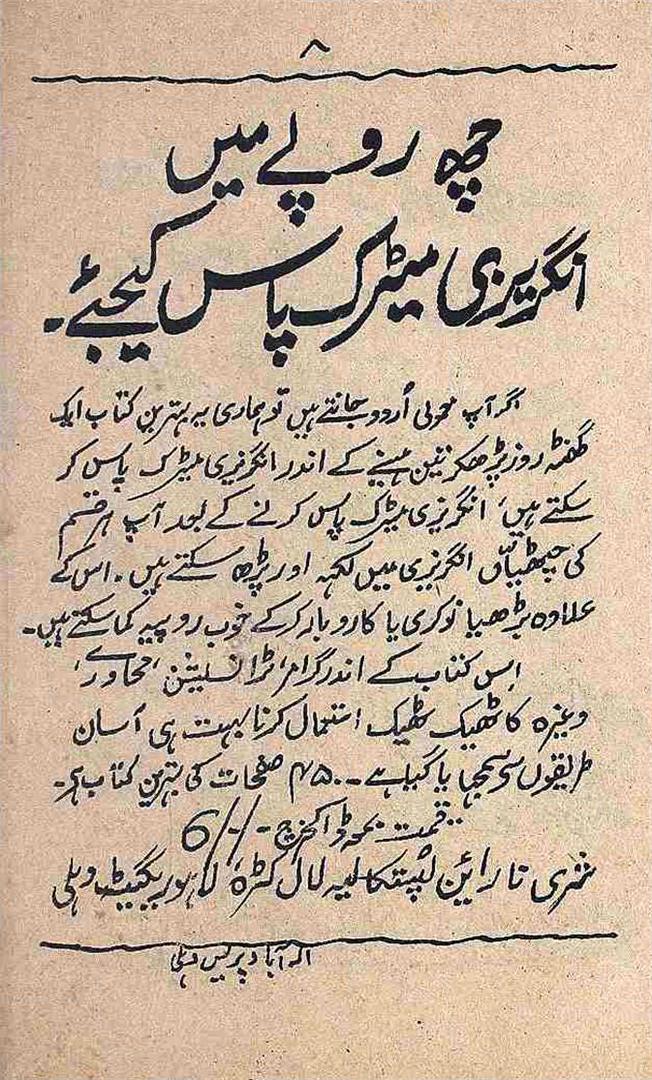 ۸
چھ روپے میں
انگریزی میٹرک پاس کیجئے۔
اگر آپ معمولی اُردو جانتے ہیں تو ہماری یہ بہترین کتاب ایک
گھنٹہ روز پڑھکر تین مہینے کے اندر انگریزی میٹرک پاس کر
سکتے ہیں، انگریزی میٹرک پاس کرنے کے بعد آپ ہر قسم
کی چھٹیاں انگریزی میں لکھ اور پڑھ سکتے ہیں۔ اس کے
علاوہ بڑھیا نوکری یا کاروبار کرکے خوب روپیہ کما سکتے ہیں۔
اِس کتاب کے اندر گرامر، ٹرانسلیشن، محاورے،
وغیرہ کا ٹھیک ٹھیک استعمال کرنا بہت ہی آسان
طریقوں سے سمجھایا گیا ہے۔ ۴۵۰ صفحات کی بہترین کتاب ہے۔
قیمت بمعہ ڈاکخرچ -/-/6
شری نارائین پُستکالیہ لال کٹرہ لاہوریگیٹ دہلی
الہ آباد پریس دہلی